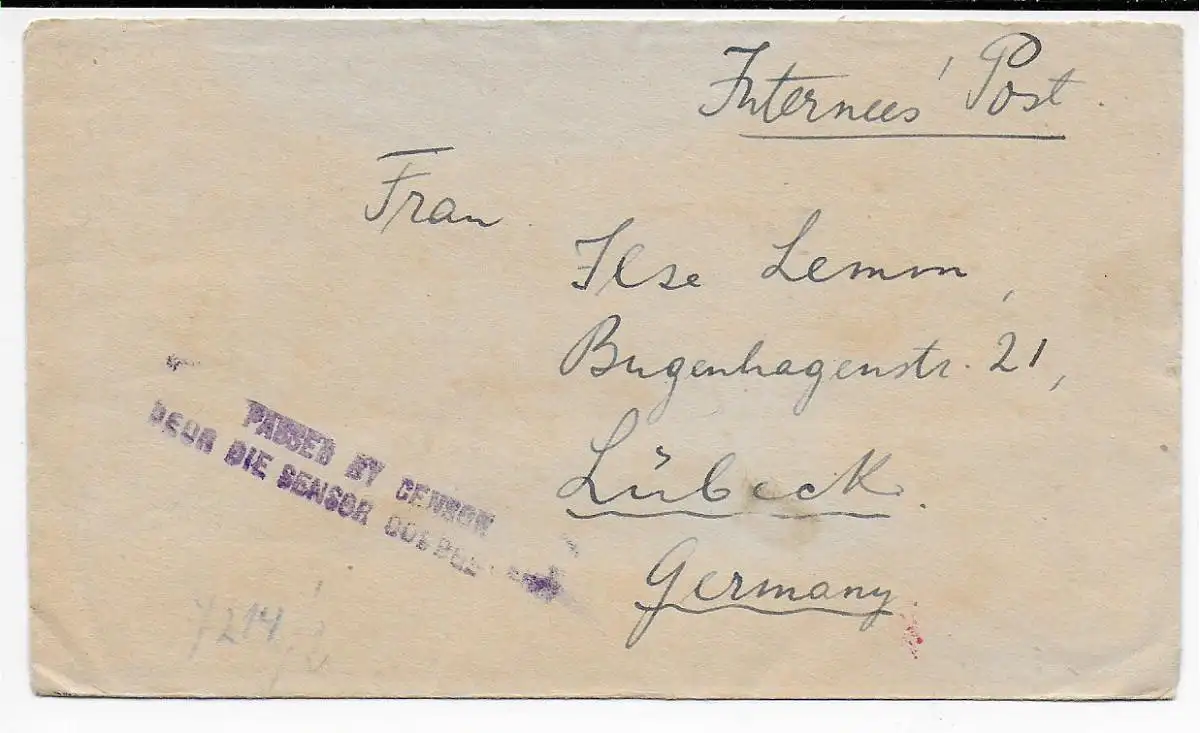 Internees' Post.
Frau
Ilse Lemm,
Bugenhagenstr. 21,
Lübeck.
Germany.
PASSED BY CENSOR
DEUR DIE SENSOR
7214